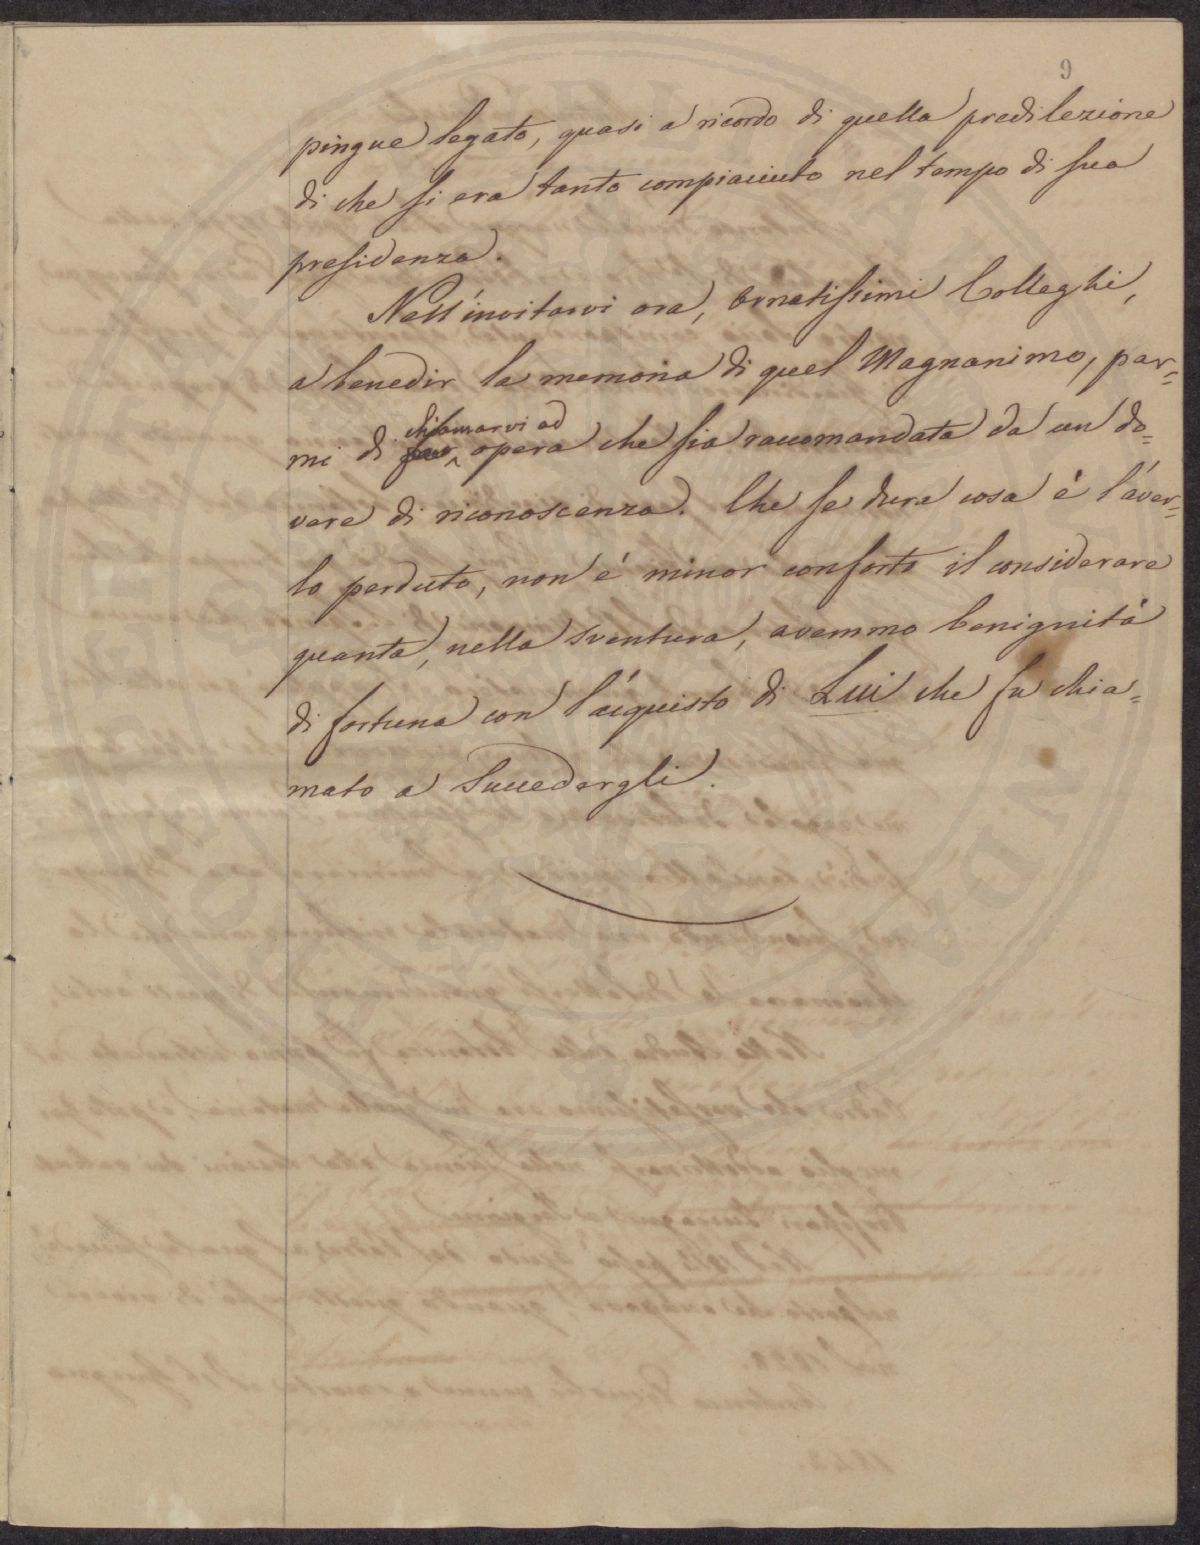 9
pingue legato, quasi a ricordo di quella predilezione
di che si era tanto compiaciuto nel tempo di sua
presidenza.
Nell'invitarvi ora, Ornatissimi Colleghi,
a benedir la memoria di quel Magnanimo, par=
chiamarvi ad
mi di opera che sia raccomandata da un do=
vere di riconoscenza. Che se dura cosa è l'aver=
lo perduto, non è minor conforto il considerare
quanta, nella sventura, avemmo benignità
di fortuna con l'acquisto di Lui che fu chia=
mato a succedergli.